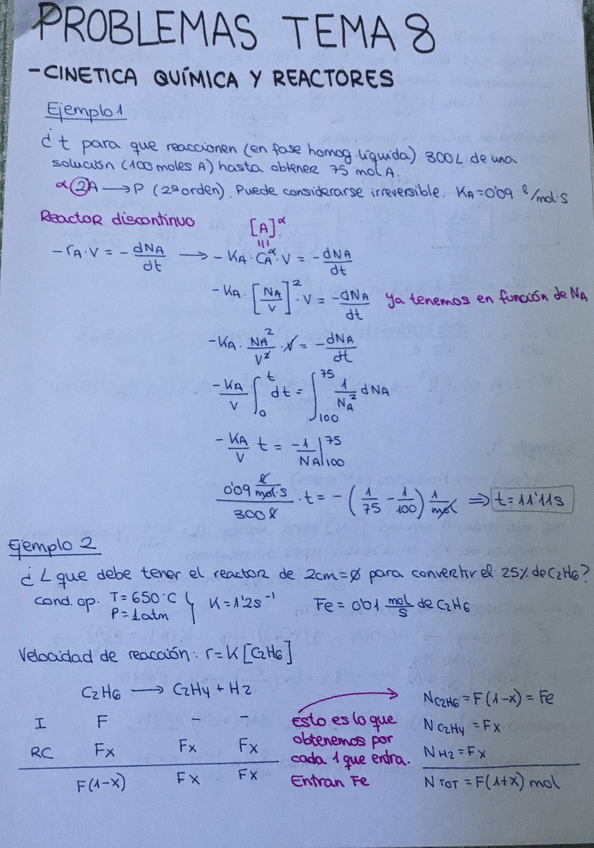 PROBLEMAS TEMA 8
-CINETICA QUÍMICA Y REACTORES
Ejemplo 1
¿t para que reaccionen (en fase homog. líquida) 300L de una
solución (100 moles A) hasta obtener 75 mol A.
α ② A → P (2º orden). Puede considerarse irreversible. KA = 0'09 ℓ/mol·s
Reactor discontinuo
[A]^α
III
-rA·V = -dNA/dt → -KA·CA^α·V = -dNA/dt
-KA·[NA/V]²·V = -dNA/dt ya tenemos en función de NA
-KA·NA²/V²·V = -dNA/dt
-KA/V ∫₀^t dt = ∫₁₀₀^75 1/NA² dNA
-KA/V t = -1/NA |₁₀₀^75
0'09 ℓ/mol·s / 300 ℓ · t = -(1/75 - 1/100) 1/mol ⇒ t = 11'11s
Ejemplo 2
¿L que debe tener el reactor de 2cm=ø para convertir el 25% de C2H6?
cond. op. T = 650ºC K = 1'2s⁻¹ Fe = 0'01 mol/s de C2H6
P = 1atm
Velocidad de reacción: r = K [C2H6]
C2H6 → C2H4 + H2
I F - -
RC Fx Fx Fx
F(1-x) Fx Fx
esto es lo que
obtenemos por
cada 1 que entra.
Entran Fe
NC2H6 = F(1-x) = Fe
NC2H4 = Fx
NH2 = Fx
NTOT = F(1+x) mol